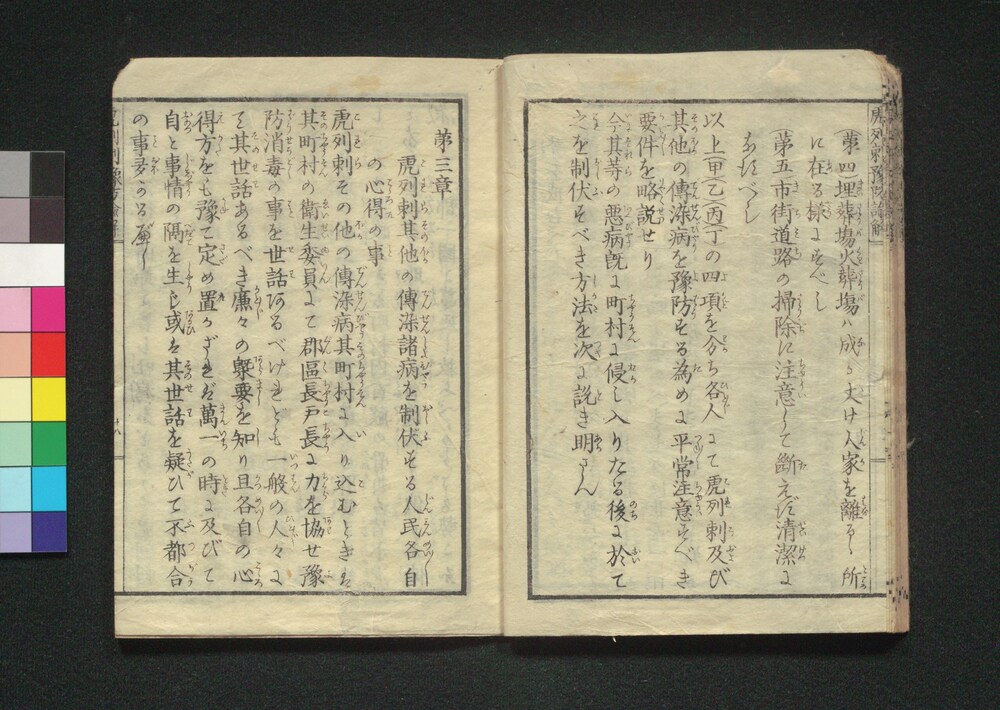 (第四)埋葬場火葬場ハ成る丈け人家を離るゝ所
に在る様にすべし
(第五市街道路の掃除に注意して断えだ清潔に
なすべし
以上(甲)(乙)(丙)(丁)の四項を分ち各人にて虎列剌及び
其他の傳染病を豫防する為めに平常注意すべき
要件を略説せり
今其等の悪病既に町村に侵し入りたる後に於て
之を制伏すべき方法を次に説き明さん
第三章
虎列剌其他の傳染諸病を制伏する人民各自
の心得の事
虎列剌その他の傳染病其町村に入り込むときは
其町村の衛生委員にて郡區長戸長に力を協せ豫
防消毒の事を世話あるべけれども一般の人々に
て其世話あるべき廉々の槩要を知り且各自の心
得方をも豫て定め置かざれば萬一の時に及びて
自と事情の隔を生じ或は其世話を疑ひて不都合
の事多かるべし